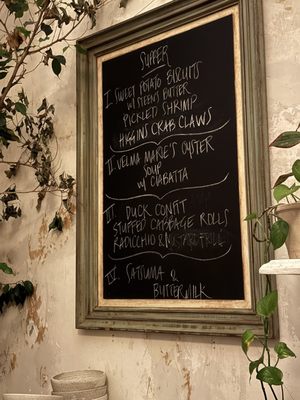 SUPPER
I. SWEET POTATO BISCUITS
W/ STEEN'S BUTTER
PICKLED SHRIMP
HIGGINS CRAB CLAWS
II. VELMA MARIE'S OYSTER
SOUP
W/ CIABATTA
III. DUCK CONFIT
STUFFED CABBAGE ROLLS
RADICCHIO &
IV. SATSUMA &
BUTTERMILK